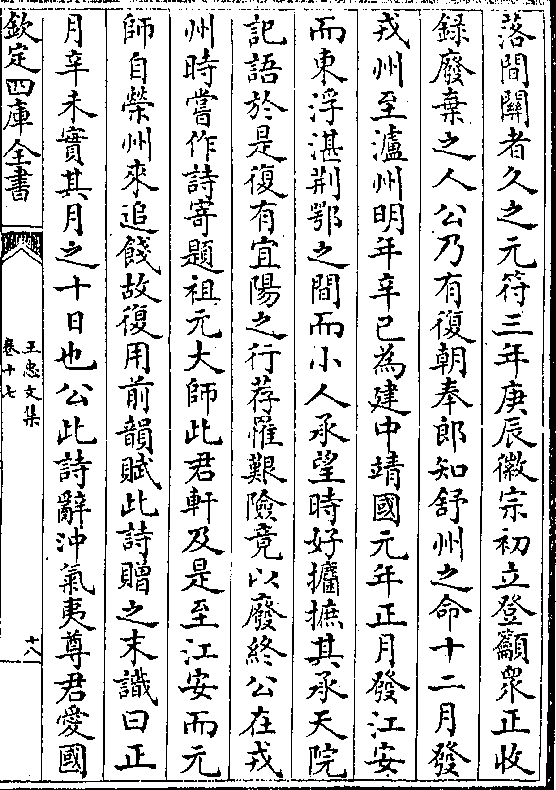 落間關者久之元符三年庚辰徽宗初立登籲衆正收
録廢棄之人公乃有復朝奉郎知舒州之命十二月發
戎州至瀘州明年辛已為建中靖國元年正月發江安
而東浮湛荆鄂之間而小人承望時好攟摭其承天院
記語於是復有宜陽之行荐罹艱險竟以廢終公在戎
州時嘗作詩寄題祖元大師此君軒及是至江安而元
師自榮州來追餞故復用前韻賦此詩贈之末識曰正
月辛未實其月之十日也公此詩辭沖氣夷尊君愛國
欽定四庫全書
王忠文集
卷十七
十八